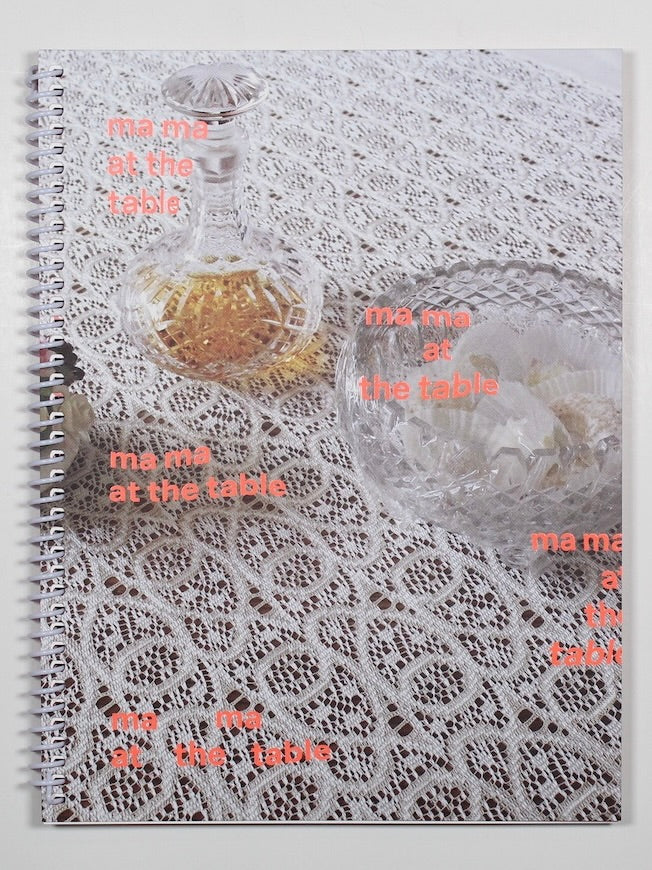 ma ma
at the
table
ma ma
at
the table
ma ma
at the table
ma ma
at
the
table
ma ma
at the table